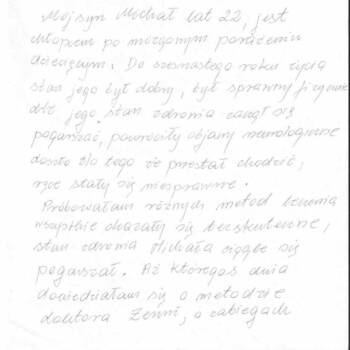 Mój syn Michał lat 22, jest
chłopcem po mózgowym porażeniu
dziecięcym. Do szesnastego roku życia
stan jego był dobry, był sprawny fizycznie
jego stan zdrowia zaczął się
pogarszać, powróciły objawy neurologiczne
doszło do tego że przestał chodzić,
ręce stały się niesprawne.
Próbowałam różnych metod leczenia
wszystkie okazały się bezskuteczne,
stan zdrowia Michała ciągle się
pogarszał. Aż któregoś dnia
dowiedziałam się o metodzie
doktora o zabiegach